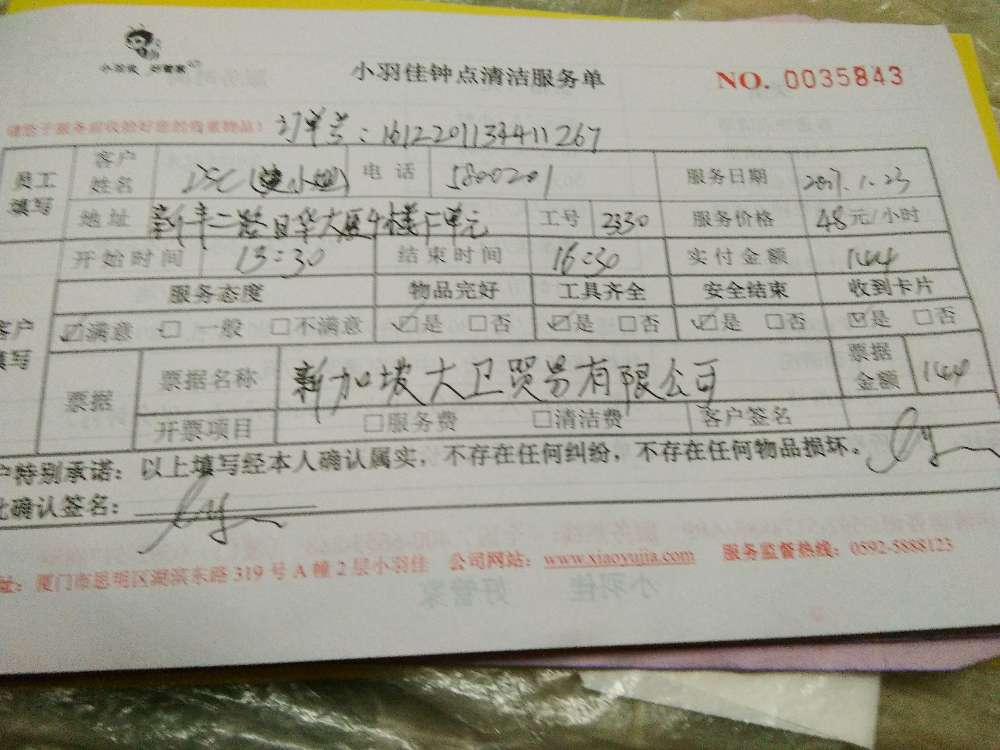 小羽佳 好管家
小羽佳钟点清洁服务单 NO. 0035843
请您于服务前收拾好您的贵重物品! 订单号:1612201134411267
员工填写 客户姓名 DSC( 小姐) 电话 5800201 服务日期 2017.1.23
地址 新丰二路日华大厦4楼F单元 工号 2330 服务价格 48元/小时
开始时间 13:30 结束时间 16:30 实付金额 144
服务态度 物品完好 工具齐全 安全结束 收到卡片
客户填写 ☑满意 □一般 □不满意 ☑是 □否 ☑是 □否 ☑是 □否 ☑是 □否
票据 票据名称 新加坡大卫贸易有限公司 票据金额 144
开票项目 □服务费 □清洁费 客户签名
户特别承诺:以上填写经本人确认属实,不存在任何纠纷,不存在任何物品损坏。
此确认签名:
址:厦门市思明区湖滨东路319号A幢2层小羽佳 公司网站:www.xiaoyujia.com 服务监督热线:0592-5888123